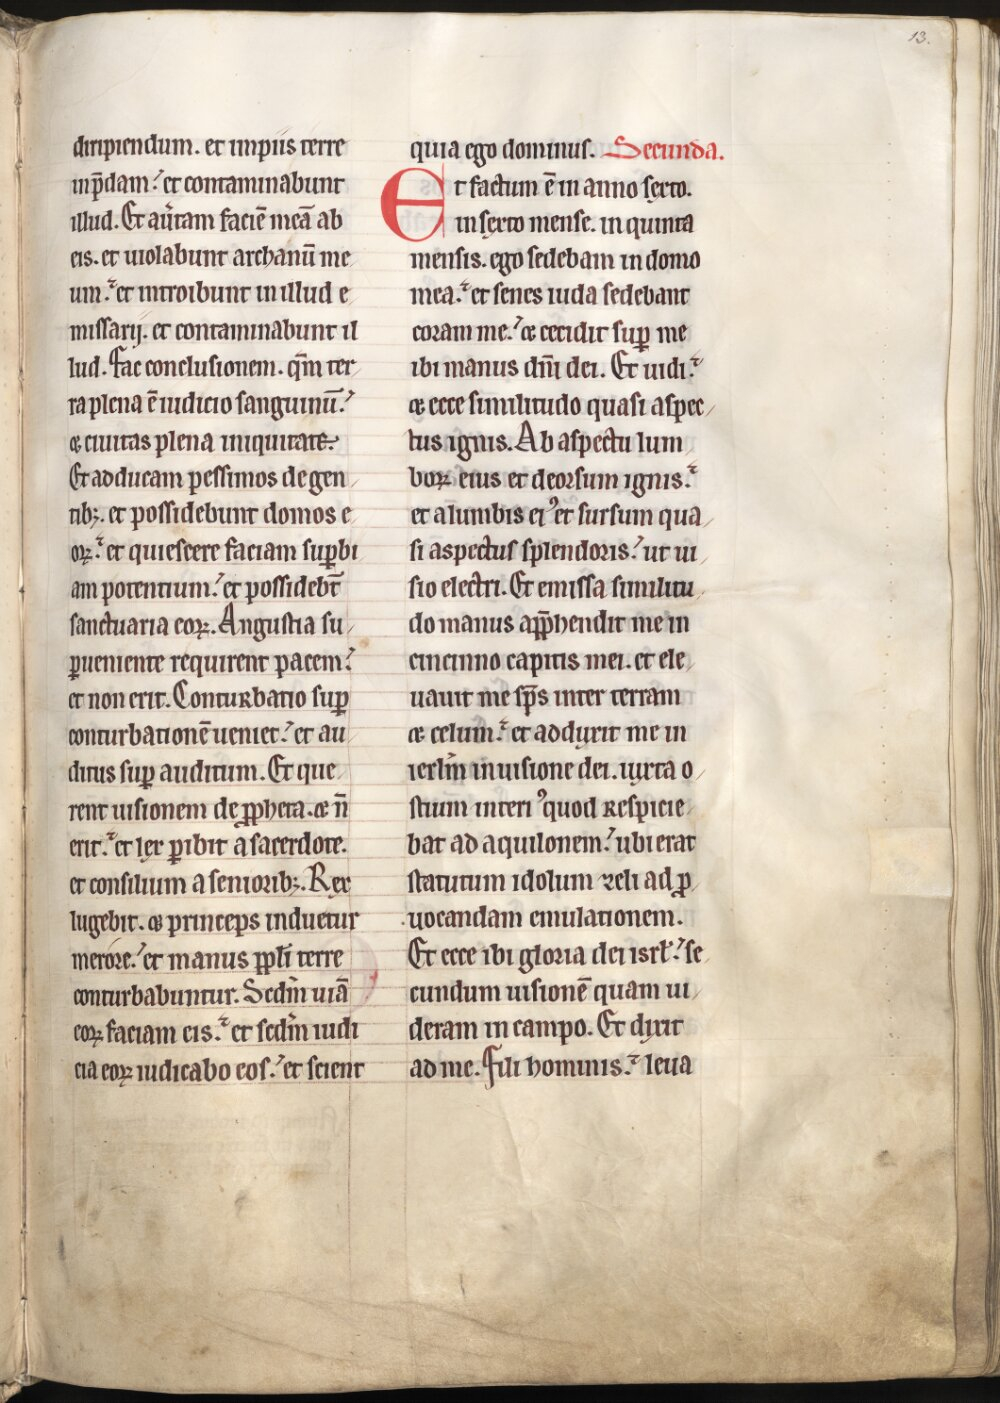 13.
diripiendum. et impiis terre
in p̄dam. et contaminabunt
illud. Et au̾tam faciē meā ab
eis. et uiolabunt archanū me
um. et introibunt in illud e
missarij. et contaminabunt il
lud. Fac conclusionem. qm̄ ter
ra plena ē iudicio sanguinū.
⁊ ciuitas plena iniquitate.
Et adducam pessimos de gen
tibꝫ. et possidebunt domos e
oꝝ. et quiescere faciam suꝑbi
am potentium. et possidebt̄
sanctuaria eoꝝ. Angustia su
ꝑueniente requirent pacem.
et non erit. Conturbatio suꝑ
conturbationē ueniet. et au
ditus suꝑ auditum. Et que
rent uisionem de ꝓpheta. ⁊ n̄
erit. et lex ꝑibit a sacerdote.
et consilium a senioribꝫ. Rex
lugebit. ⁊ princeps induetur
merore. et manus ppl̄i terre
conturbabuntur. Secdm̄ uiā
eoꝝ faciam eis. et secdm̄ iudi
cia eoꝝ iudicabo eos. et scient
quia ego dominus. Secunda.
Et factum ē in anno sexto.
in sexto mense. in quinta
mensis. ego sedebam in domo
mea. et senes iuda sedebant
coram me. ⁊ cecidit suꝑ me
ibi manus dn̄i dei. Et uidi.
⁊ ecce similitudo quasi aspec
tus ignis. Ab aspectu lum
boꝝ eius et deorsum ignis.
et a lumbis eiꝰ et sursum qua
si aspectus splendoris. ut ui
sio electri. Et emissa similitu
do manus app̄hendit me in
cincinno capitis mei. et ele
uauit me sp̄s inter terram
⁊ celum. et adduxit me in
ierl̄m in uisione dei. iuxta o
stium interiꝰ quod respicie
bat ad aquilonem. ubi erat
statutum idolum zeli ad ꝓ
uocandam emulationem.
Et ecce ibi gloria dei isrl̄. se
cundum uisionē quam ui
deram in campo. Et dixit
ad me. Fili hominis. leua